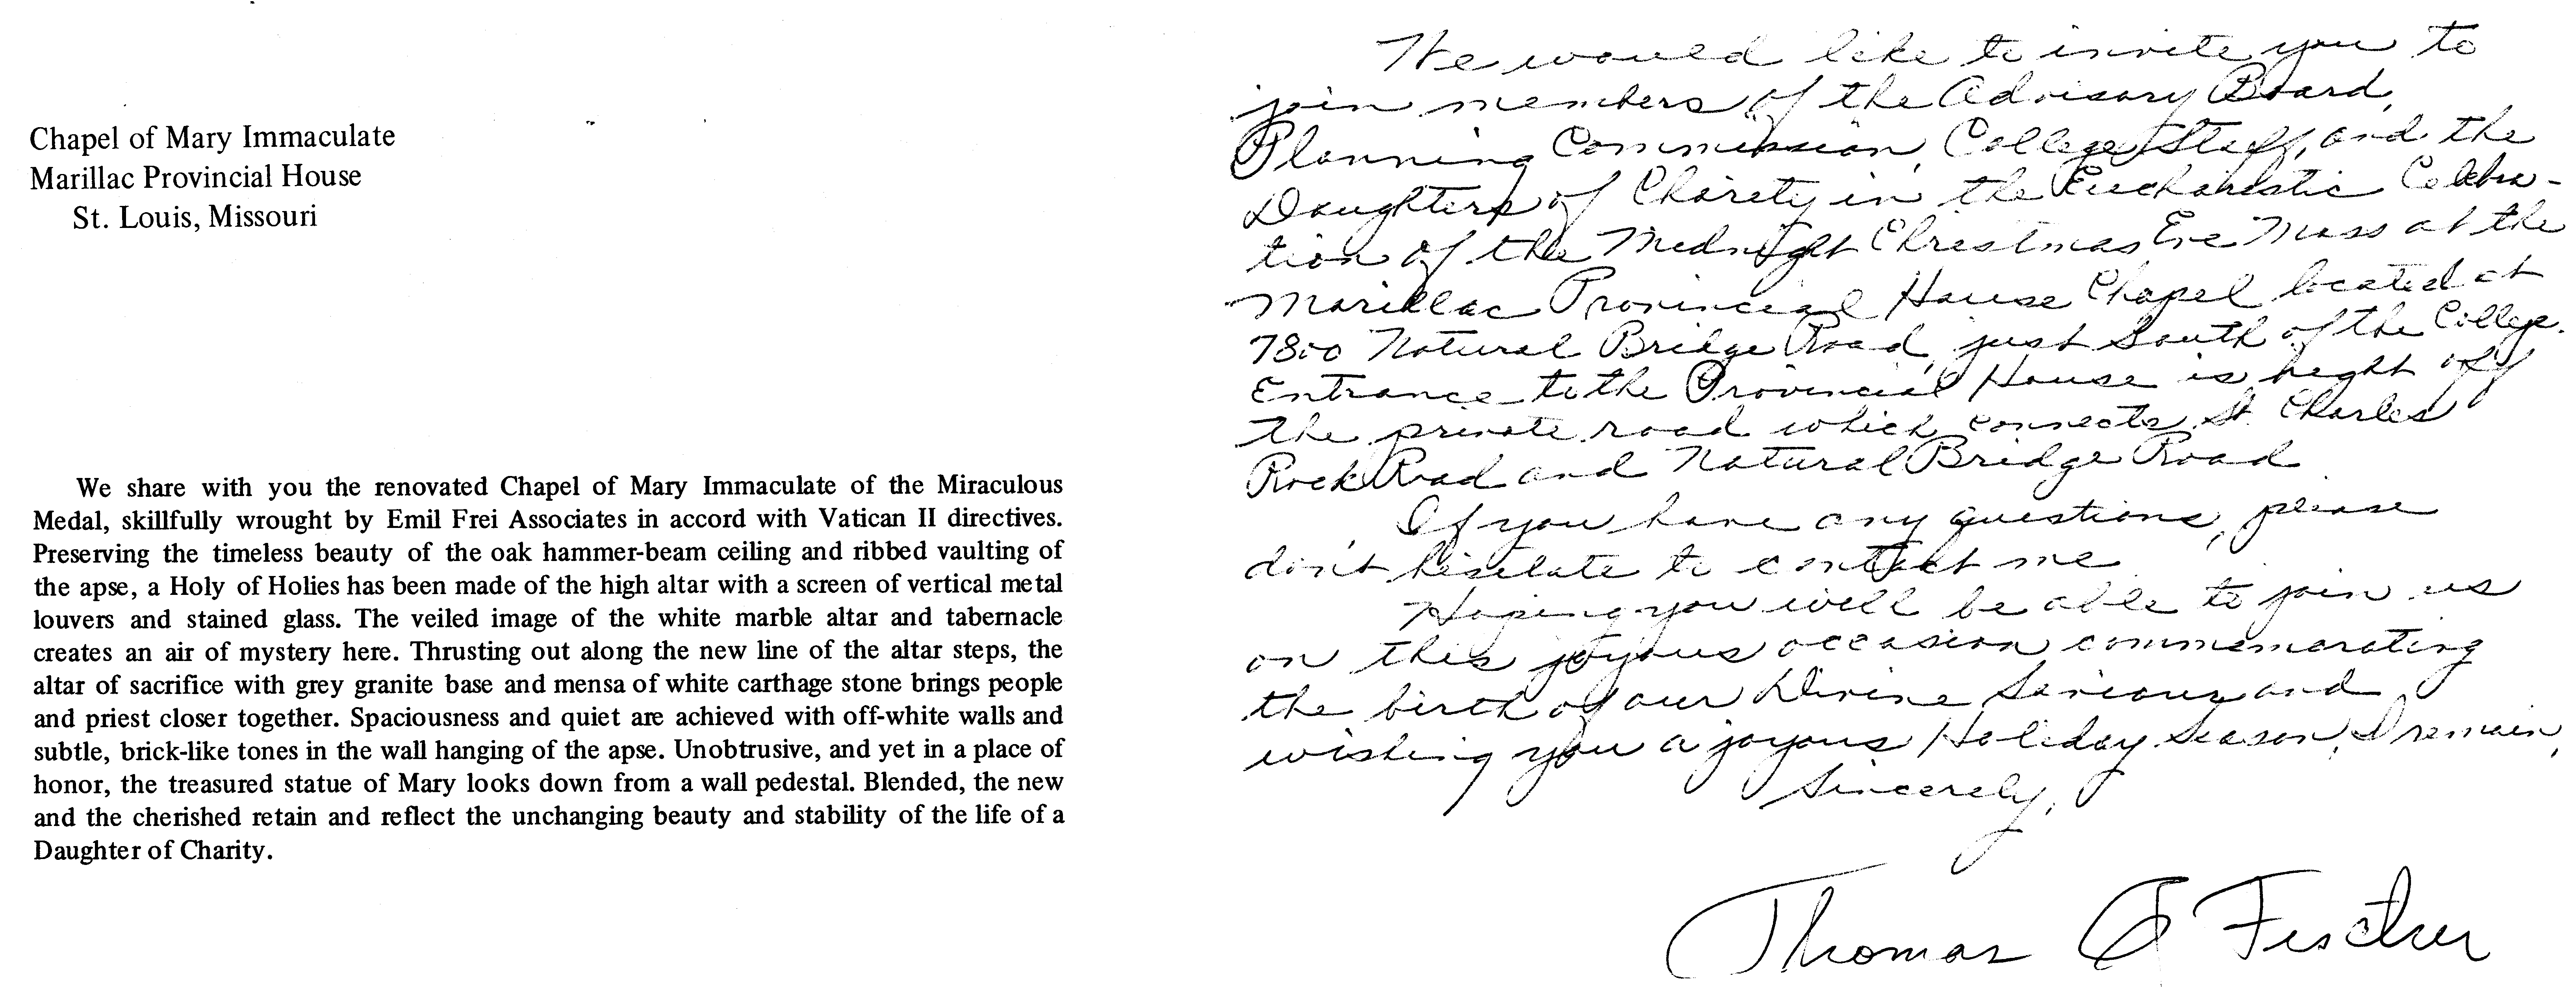 Chapel of Mary Immaculate
Marillac Provincial House
St. Louis, Missouri
We share with you the renovated Chapel of Mary Immaculate of the Miraculous
Medal, skillfully wrought by Emil Frei Associates in accord with Vatican II directives.
Preserving the timeless beauty of the oak hammer-beam ceiling and ribbed vaulting of
the apse, a Holy of Holies has been made of the high altar with a screen of vertical metal
louvers and stained glass. The veiled image of the white marble altar and tabernacle
creates an air of mystery here. Thrusting out along the new line of the altar steps, the
altar of sacrifice with grey granite base and mensa of white carthage stone brings people
and priest closer together. Spaciousness and quiet are achieved with off-white walls and
subtle, brick-like tones in the wall hanging of the apse. Unobtrusive, and yet in a place of
honor, the treasured statue of Mary looks down from a wall pedestal. Blended, the new
and the cherished retain and reflect the unchanging beauty and stability of the life of a
Daughter of Charity.
We would like to invite you to
join members of the Advisory Board,
Planning Commission, College Staff, and the
Daughters of Charity in the Eucharistic Celebra-
tion of the Midnight Christmas Eve Mass at the
Marillac Provincial House Chapel located at
7800 Natural Bridge Road, just South of the College.
Entrance to the Provincial House is right off
the private road which connects St. Charles
Rock Road and Natural Bridge Road
If you have any questions, please
don't hesitate to contact me
Hoping you will be able to join us
on this joyous occasion commemorating
the birth of our Divine Saviour and
wishing you a joyous Holiday Season, I remain,
Sincerely,
Thomas Fischer